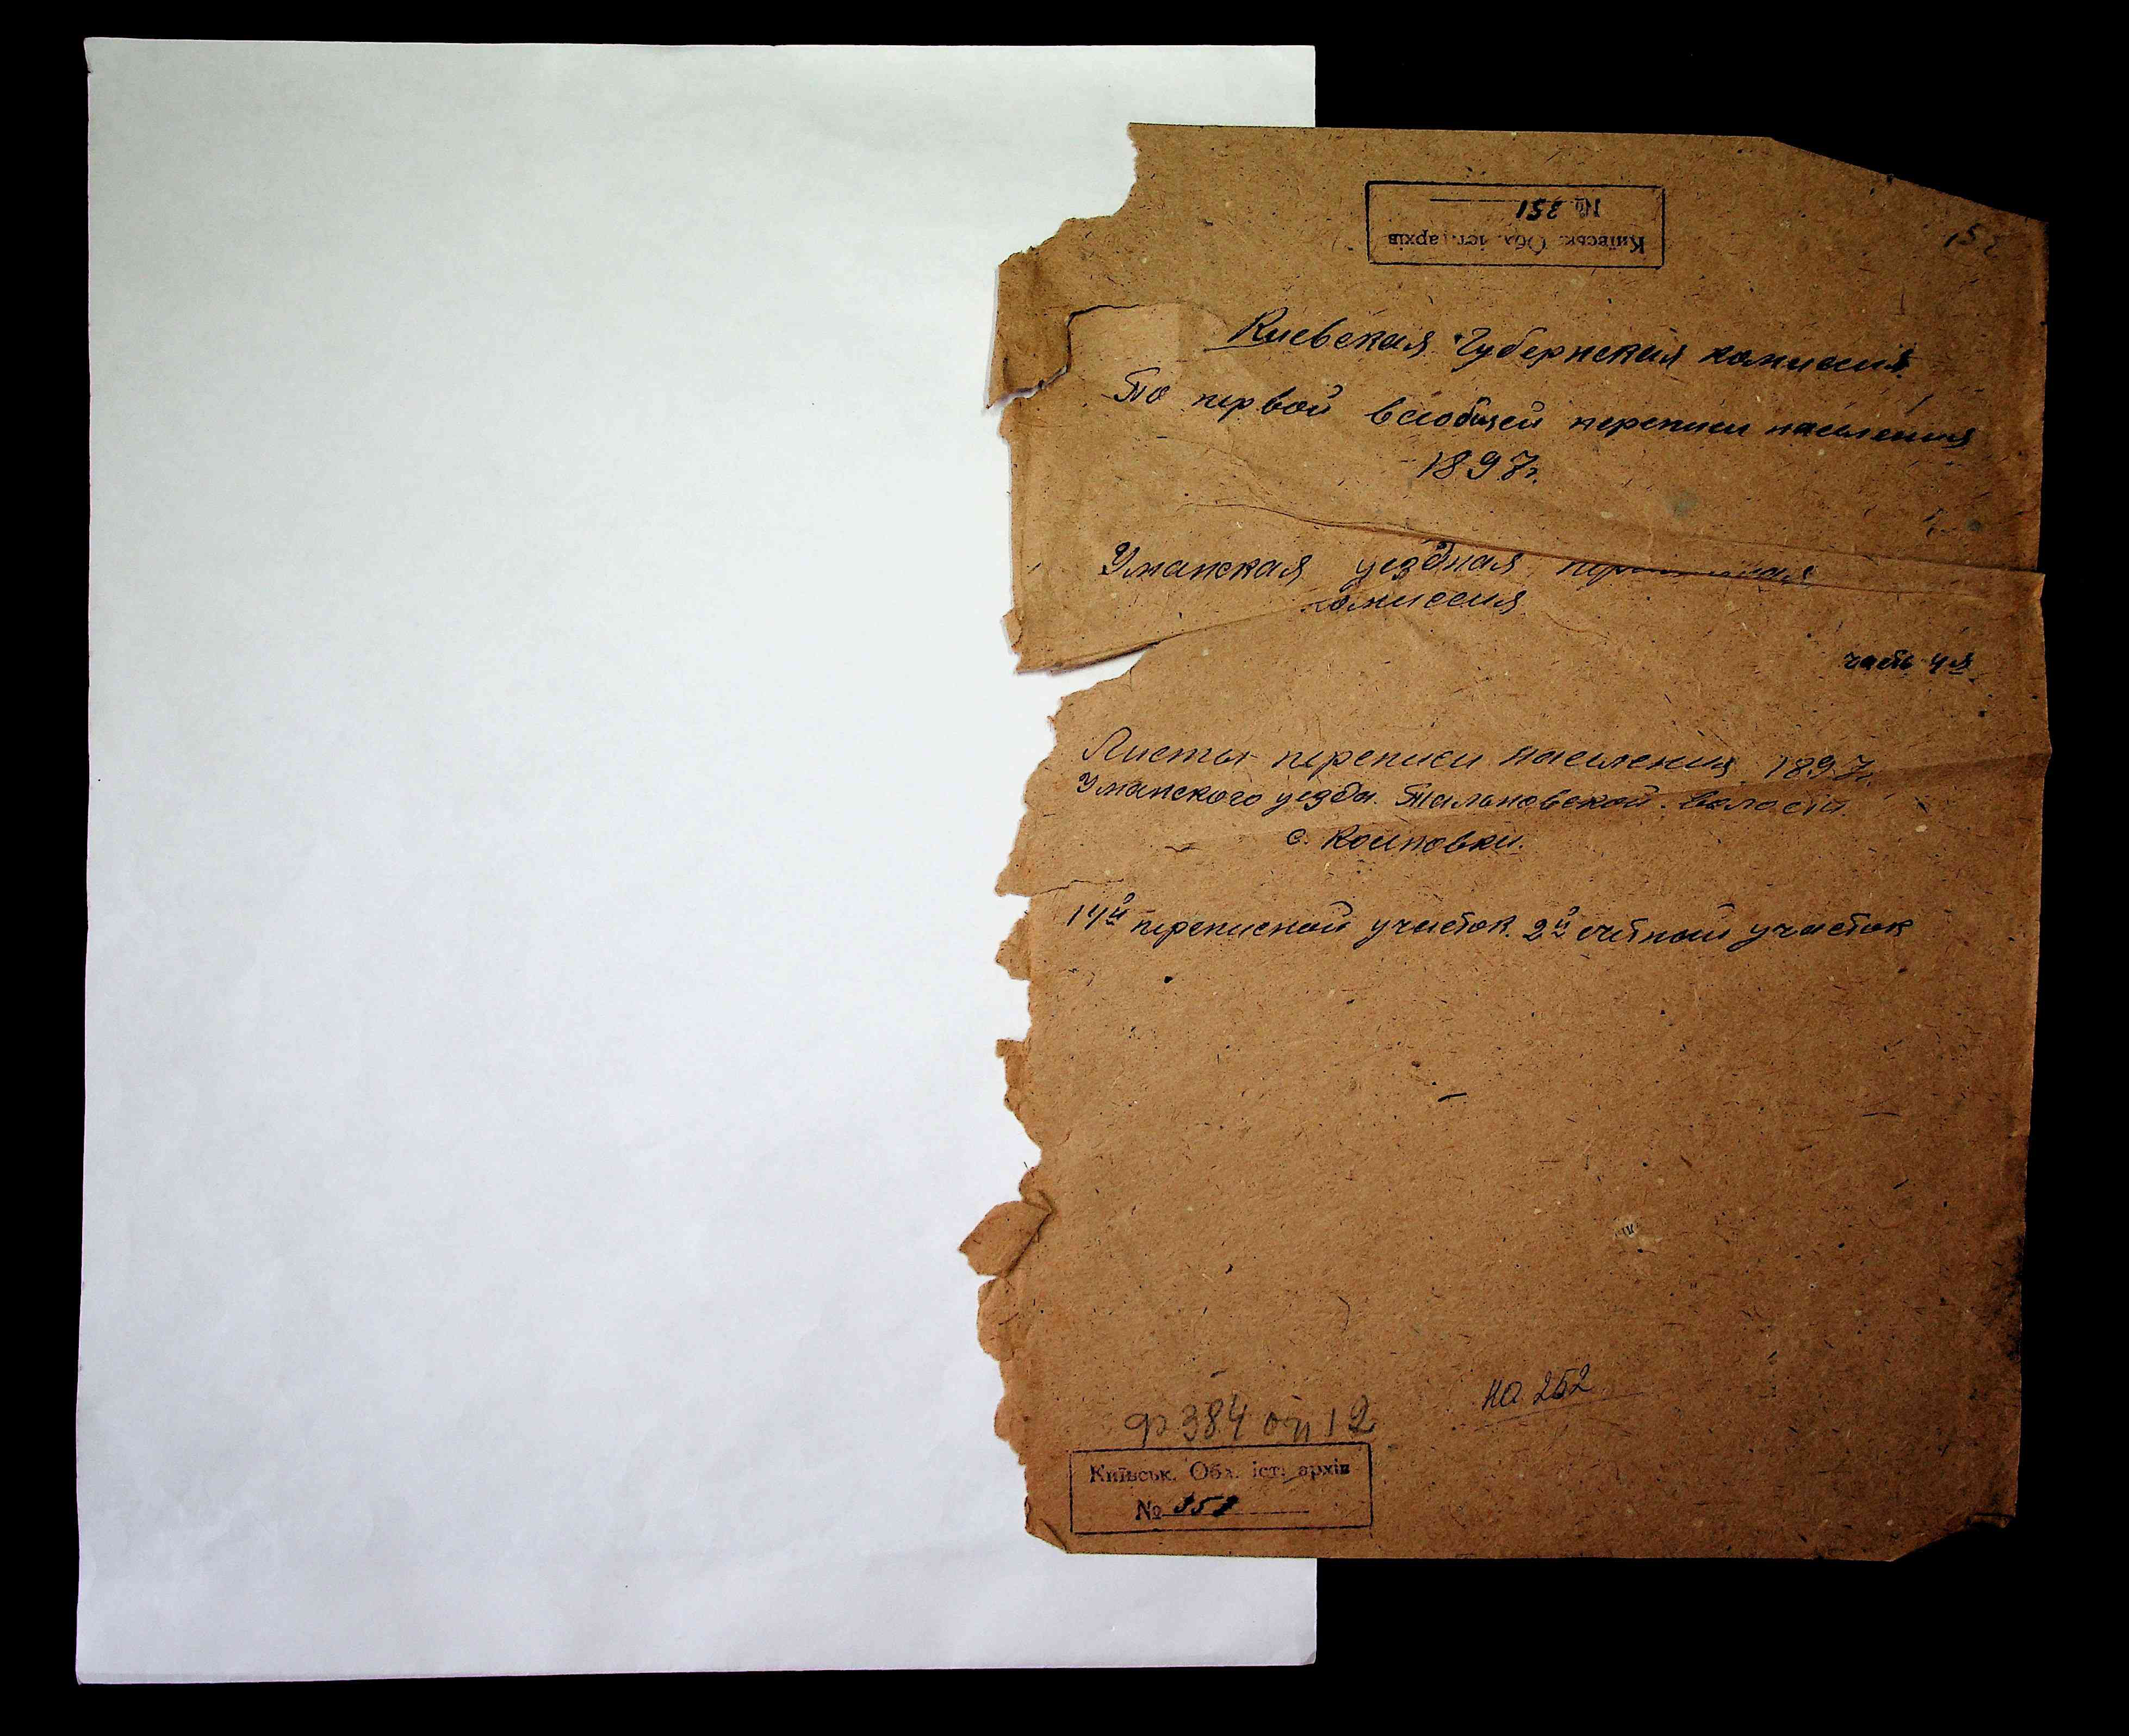 Київськ. Обл. іст. архів
№ 351
351
Киевская Губернская комиссия.
По первой всеобщей переписи населения
1897г.
Уманская уездная
комиссия
часть 4я.
Листы переписи населения 1897г.
Уманского уезда. Тальновской. волости.
с.
14й переписной участок. 2й счетный участок
на 252
ф 384 оп 12
Київськ. Обл. іст. архів
№ 351